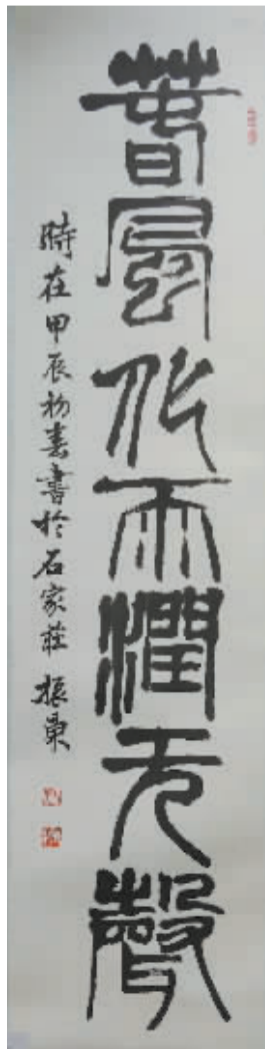 春風化雨潤无聲
時在甲辰初春書於石家莊 振東